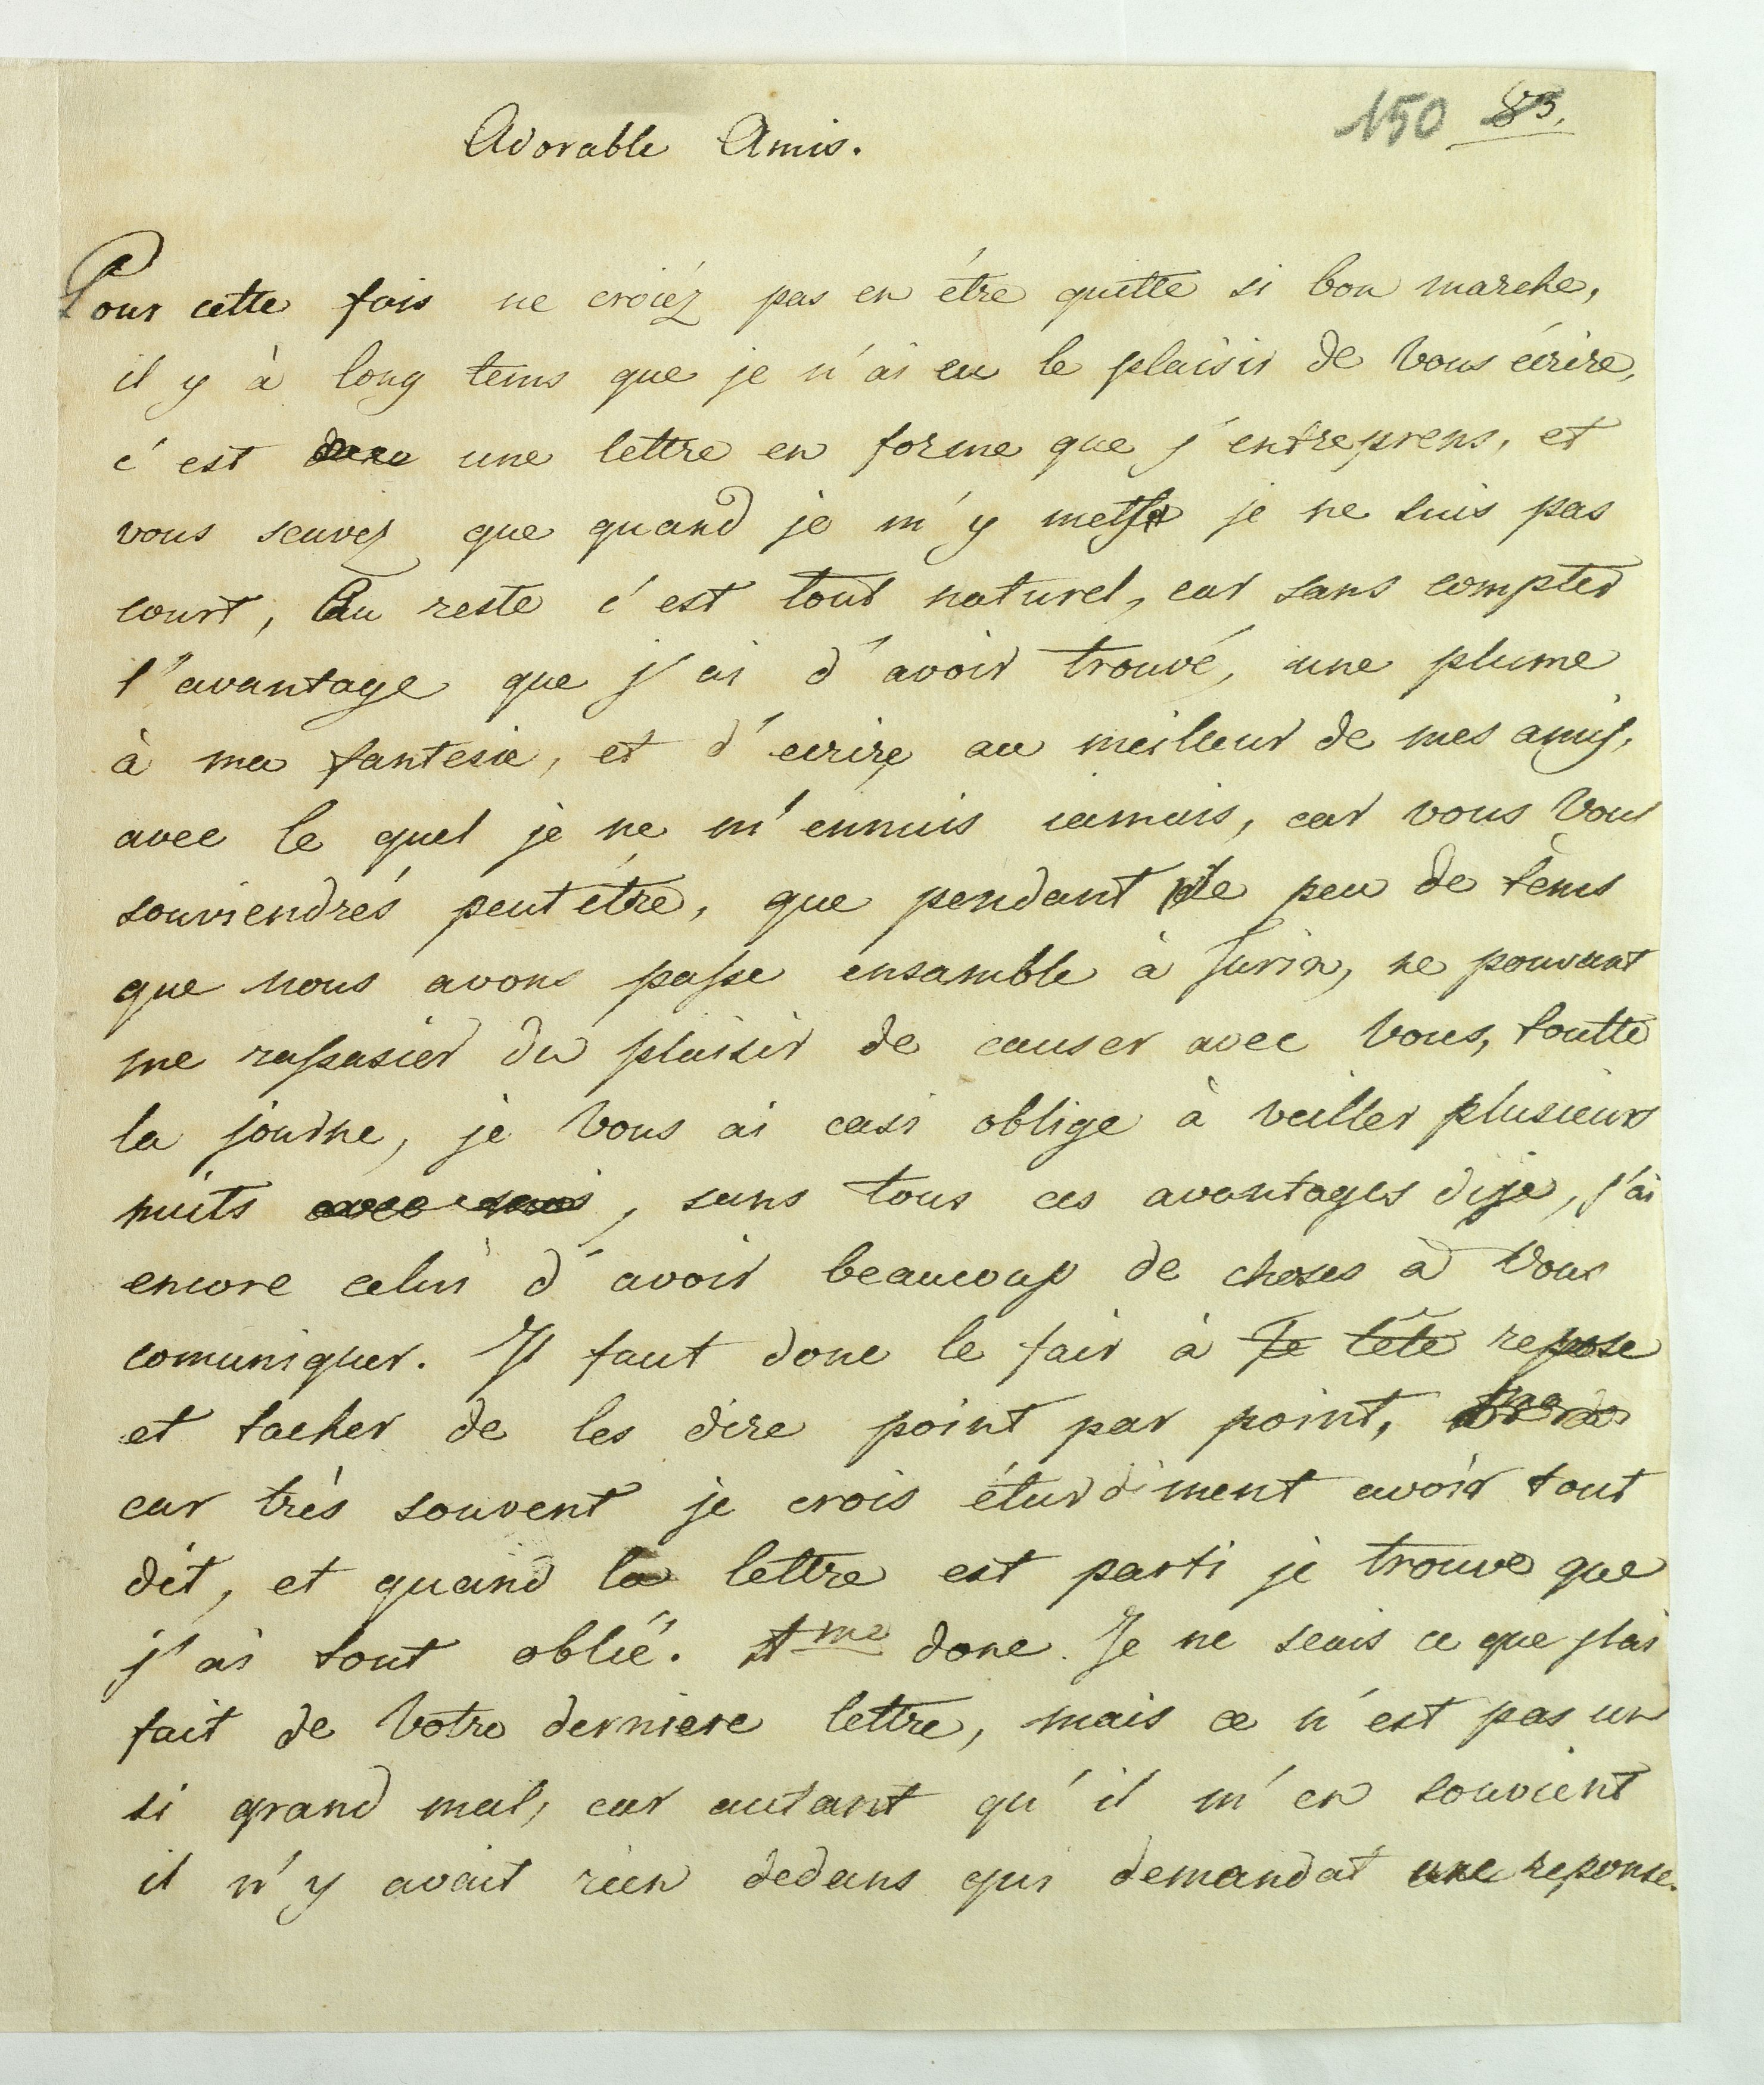 150 83.
Adorable Amis.
Pour cette fois ne croiéz pas en étre quitte si bon marche,
il y à long tems que je n'ai eu le plaisir de vous écrire,
c'est une lettre en forme que j'entreprens, et
vous scavez que quand je m'y mets je ne suis pas
court, Au reste c'est tout naturel, car sans compter
l'avantage que j'ai d'avoir trouvé, une plume
à ma fantesie, et d'ecrire au meilleur de mes amis,
avec le quel je ne m'ennuis iamais, car vous vous
souviendrés peut étre, que pendant le peu de tems
que nous avons passe ensamble à Turin, ne pouvant
me rassasier du plaisir de causer avec vous, toutte
la journe, je vous ai casi oblige à veiller plusieurs
nuits avec , sans tous ces avantages dije, j'ai
encore celui d'avoir beaucoup de choses à vous
comuniquer. Il faut donc le fair à Te tête repose
et tacher de les dire point par point,
car très souvent je crois éturdiment avoir tout
dit, et quand la lettre est parti je trouve que
j'ai tout oblié. 1me donc. Je ne scais ce que j'ai
fait de votre derniere lettre, mais ce n'est pas un
si grand mal, car autant qu'il m'en souvient
il n'y avait rien dedans qui demandat une reponse.